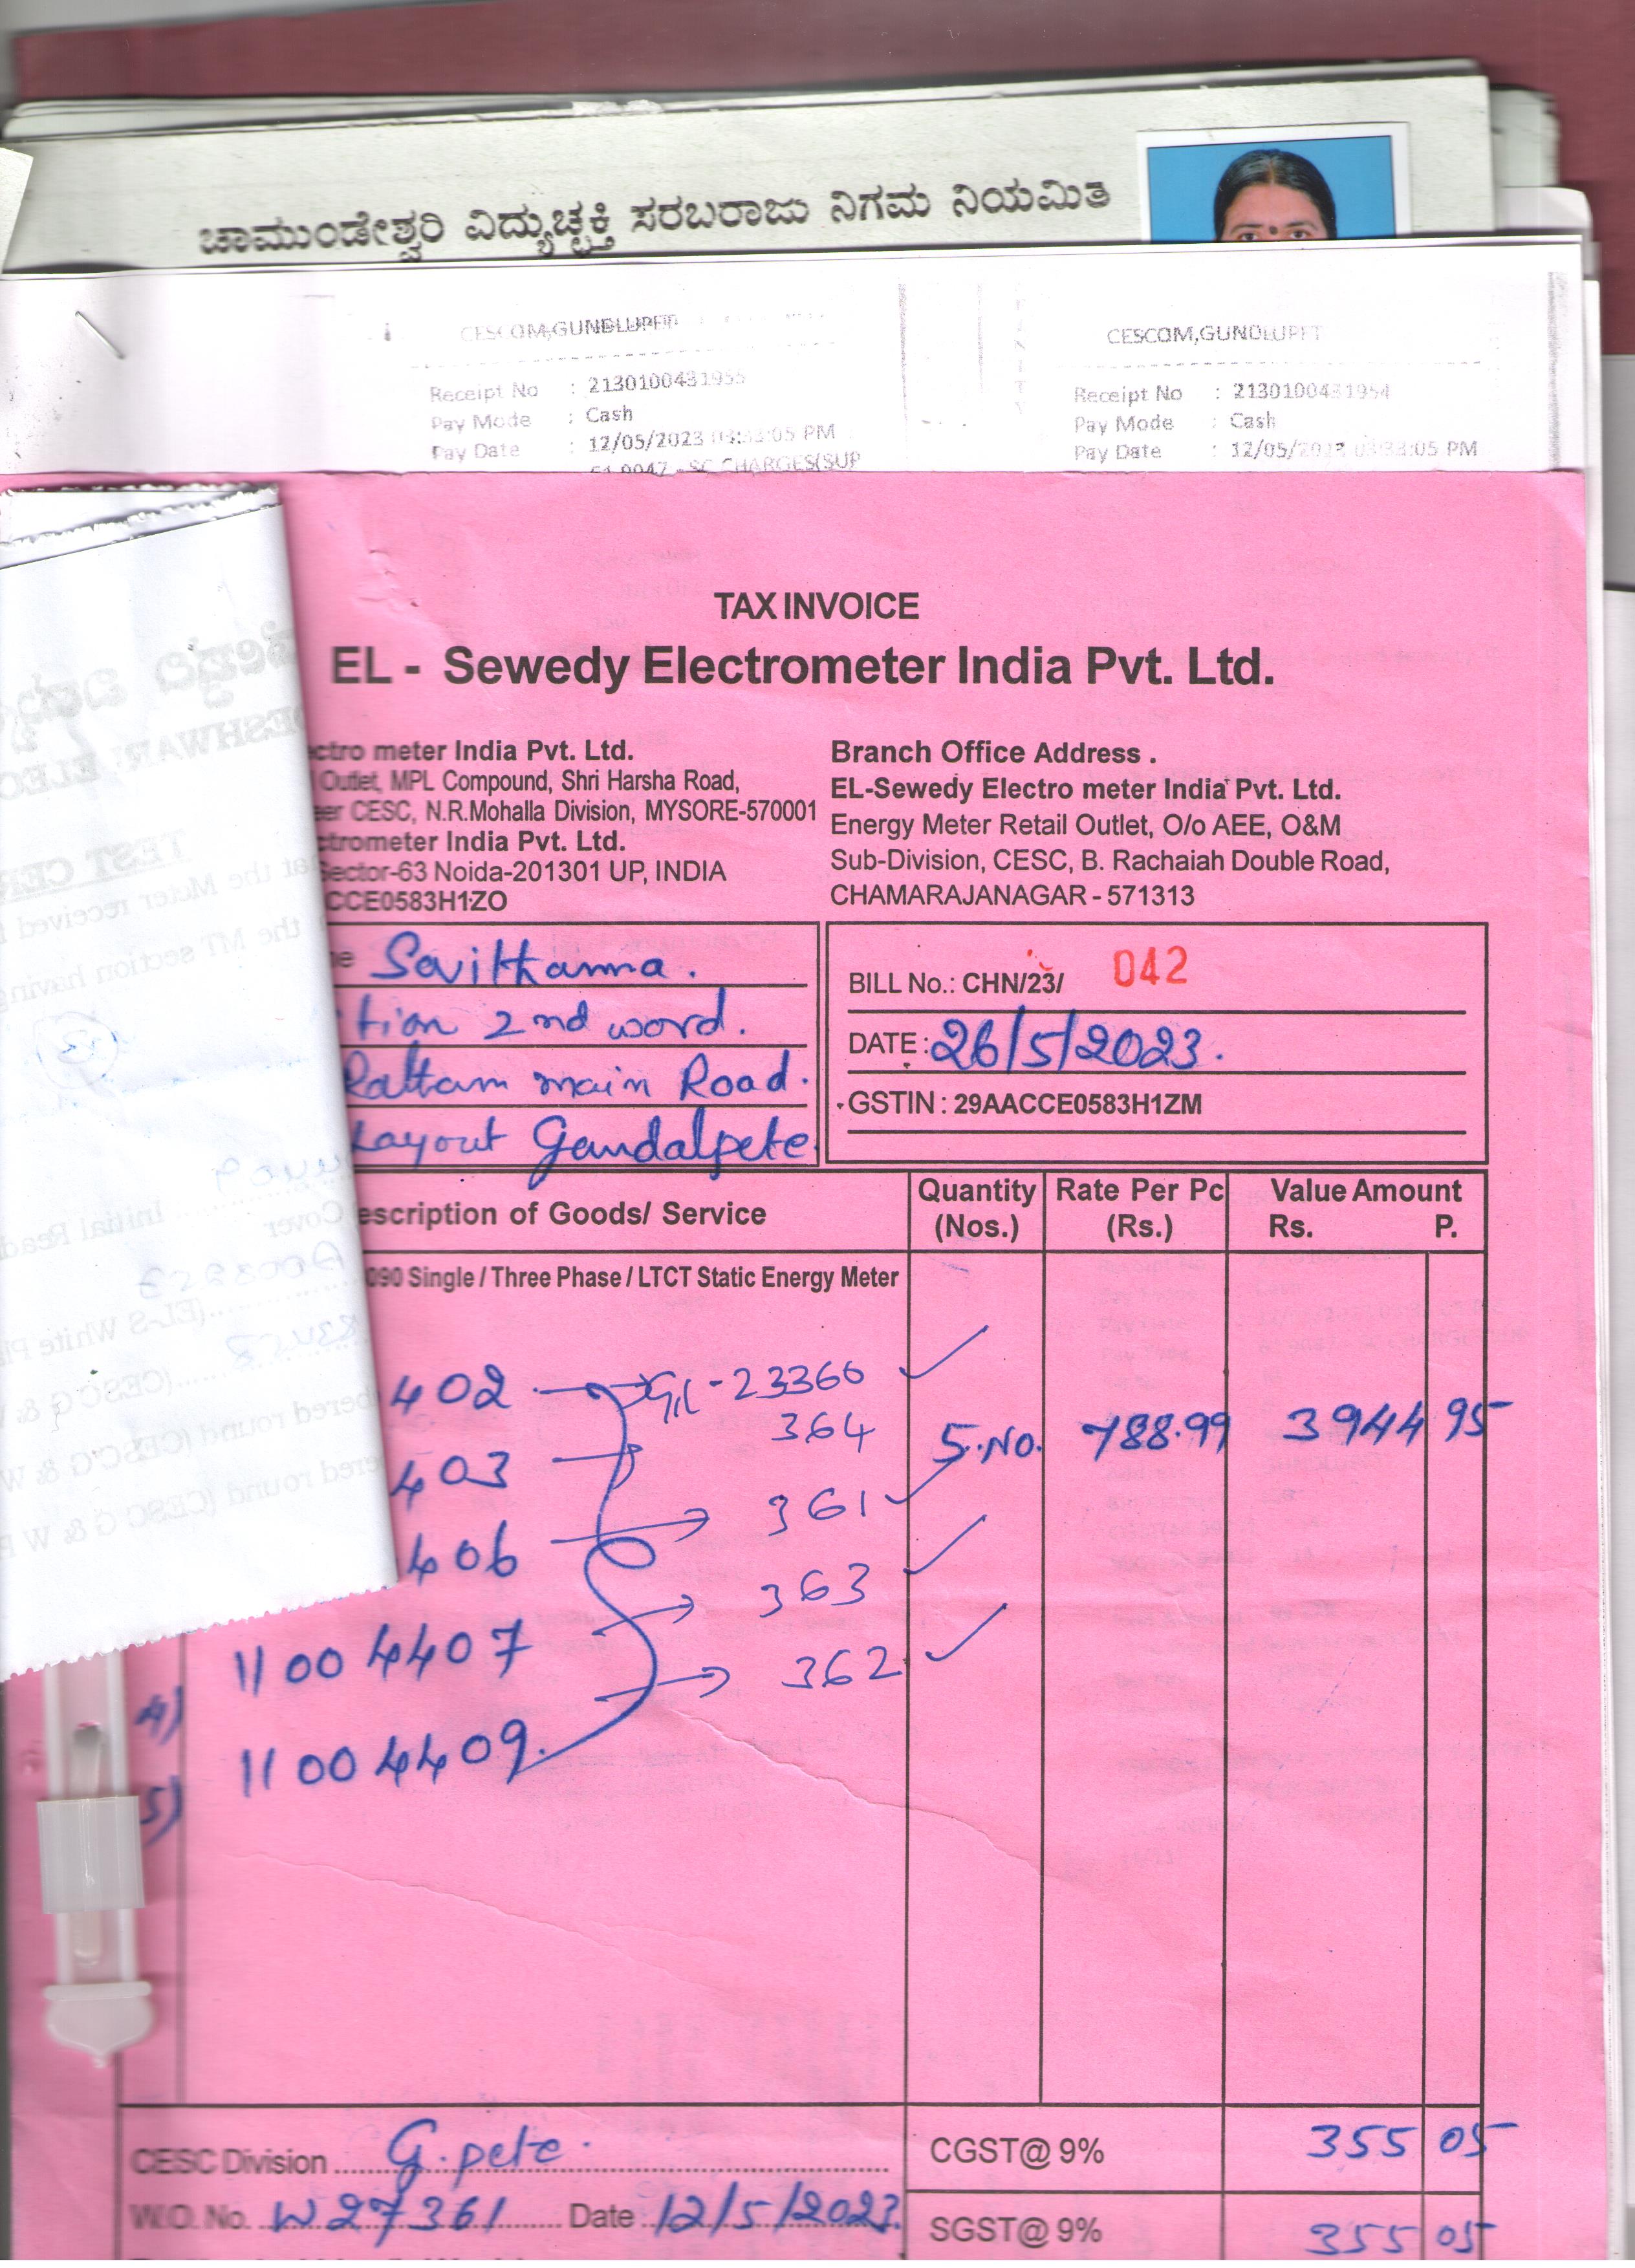 ಚಾಮುಂಡೇಶ್ವರಿ ವಿದ್ಯುಚ್ಛಕ್ತಿ ಸರಬರಾಜು ನಿಗಮ ನಿಯಮಿತ
CESCOM,GUNDLUPET
Receipt No : 2130100431955
Pay Mode : Cash
Pay Date : 12/05/2023 PM
SC CHARGES(SUP
CESCOM,GUNDLUPET
Receipt No : 2130100431954
Pay Mode : Cash
Pay Date : 12/05/2023 03:33:05 PM
TAX INVOICE
EL - Sewedy Electrometer India Pvt. Ltd.
ctro meter India Pvt. Ltd.
Outlet, MPL Compound, Shri Harsha Road,
eer CESC, N.R.Mohalla Division, MYSORE-570001
ctrometer India Pvt. Ltd.
Sector-63 Noida-201301 UP, INDIA
CCE0583H1ZO
Branch Office Address .
EL-Sewedy Electro meter India Pvt. Ltd.
Energy Meter Retail Outlet, O/o AEE, O&M
Sub-Division, CESC, B. Rachaiah Double Road,
CHAMARAJANAGAR - 571313
Savithamma.
tion 2nd word.
Rattam main Road.
Layout Gandalpete.
BILL No.: CHN/23/ 042
DATE : 26/5/2023.
GSTIN : 29AACCE0583H1ZM
escription of Goods/ Service
Quantity (Nos.)
Rate Per Pc (Rs.)
Value Amount
Rs. P.
090 Single / Three Phase / LTCT Static Energy Meter
402 23366
364
403
5.No. 788.99 3944 95
361
406
363
4) 11004407
362
5) 11004409.
CESC Division G.pete.
CGST@ 9% 355 05
W.O. No. W27361 Date 12/5/2023.
SGST@ 9% 355 05